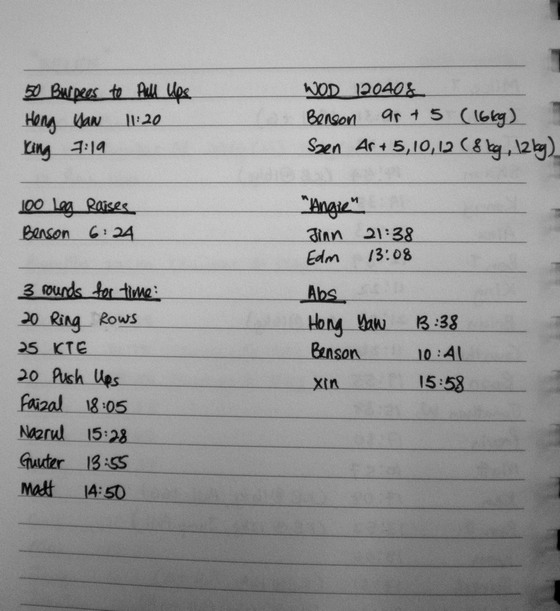 50 Burpees to Pull Ups
Hong Yaw 11:20
King 7:19
100 Leg Raises
Benson 6:24
3 rounds for time:
20 Ring Rows
25 KTE
20 Push Ups
Faizal 18:05
Nazrul 15:28
Guuter 13:55
Matt 14:50
WOD 120408
Benson 9r + 5 (16kg)
Szen 4r + 5,10,12 (8kg, 12kg)
"Angie"
Jinn 21:38
Edm 13:08
Abs
Hong Yaw 13:38
Benson 10:41
Xin 15:58